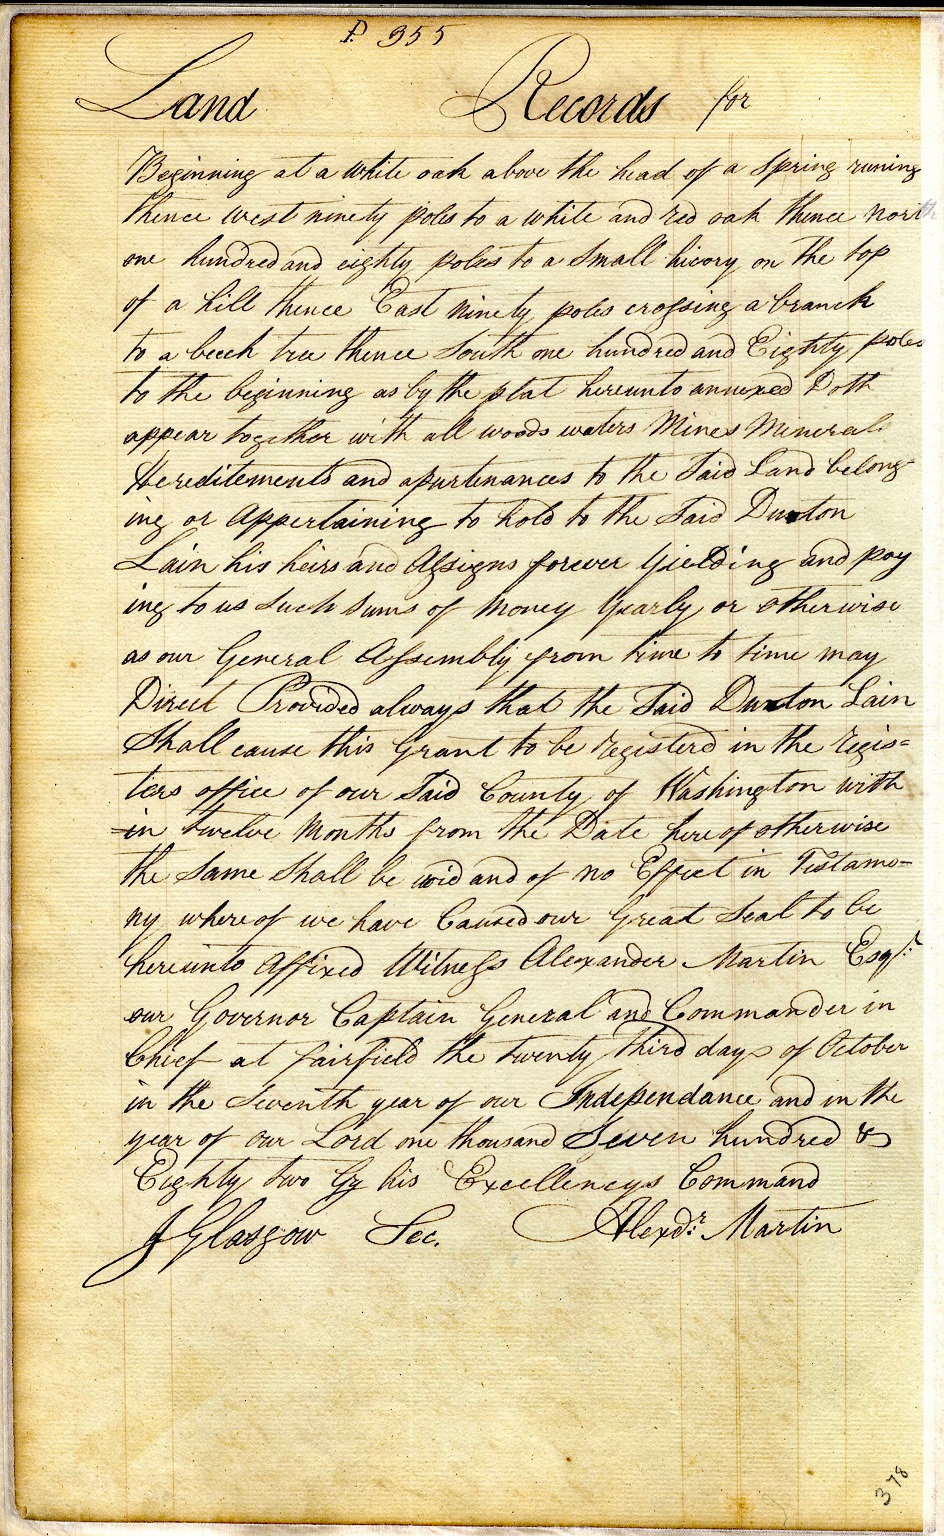 P. 355
Land Records for
Beginning at a white oak above the head of a Spring runing
thence west ninety poles to a white and red oak thence north
one hundred and eighty poles to a Small hicory on the top
of a hill thence East ninety poles crossing a branch
to a beech tree thence South one hundred and Eighty poles
to the beginning as by the plat hereunto annexed Doth
appear together with all woods waters Mines Minerals
Hereditements and apurtenances to the Said Land belong-
ing or Appertaining to hold to the Said
Lain his heirs and Assigns forever Yielding and pay
ing to us Such Sums of Money Yearly or otherwise
as our General Assembly from time to time may
Direct Provided always that the Said Lain
Shall cause this Grant to be registerd in the regis=
ters office of our Said County of Washington with
=in twelve Months from the Date hereof otherwise
the Same Shall be void and of no Effect in Testamo-
ny whereof we have Caused our Great Seal to be
hereunto Affixed Witness Alexander Martin Esqr.
our Governor Captain General and Commander in
Chief at fairfield the twenty third day of October
in the Seventh year of our Independance and in the
year of our Lord one thousand Seven hundred &
Eighty two By his Excellencys Command
J Glasgow Sec. Alexdr. Martin
378